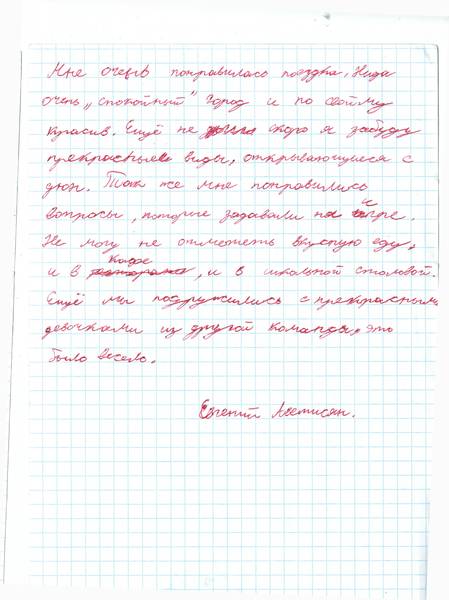 Мне очень понравилась поездка, Нида
очень „спокойный" город и по своему
красив. Ещё не скоро я забуду
прекрасные виды, открывающиеся с
дюн. Так же мне понравились
вопросы, которые задавали на игре.
Не могу не отмететь вкусную еду,
и в кафе, и в школьной столовой.
Ещё мы подружились с прекрасными
девочками из другой команды, это
было весело.
Евгений